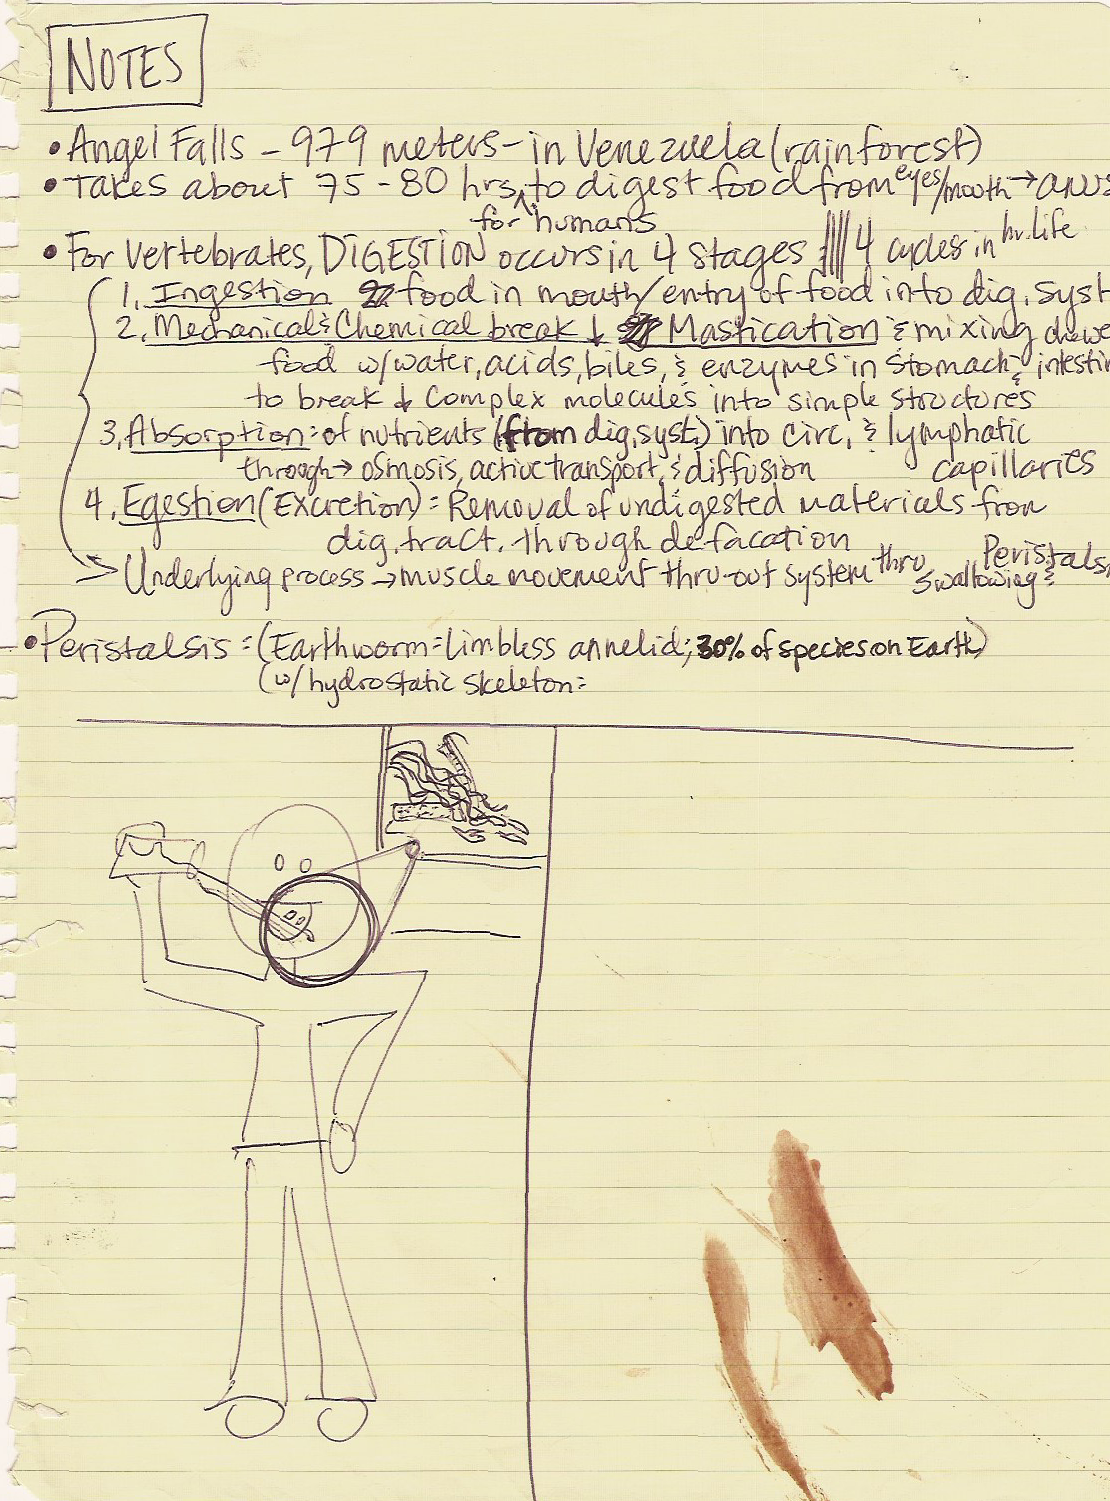 NOTES
• Angel Falls - 979 meters - in Venezuela (rainforest)
• Takes about 75 - 80 hrs, to digest food from eyes/mouth → anus
for humans
• For Vertebrates, DIGESTION occurs in 4 stages 4 cycles in hu. life
1. Ingestion food in mouth/entry of food into dig. syst
2. Mechanical & Chemical break ↓ Mastication & mixing chewe
food w/water, acids, biles, & enzymes in stomach & intestin
to break ↓ complex molecules into simple structures
3. Absorption: of nutrients (from dig. syst.) into circ, & lymphatic
through → osmosis, active transport, & diffusion capillaries
4. Egestion (Excretion) = Removal of undigested materials from
dig. tract. through defacation
> Underlying process → muscle movement thru-out system thru swallowing & Peristals
• Peristalsis = (Earthworm = limbless annelid; 30% of species on Earth)
(w/ hydrostatic skeleton =